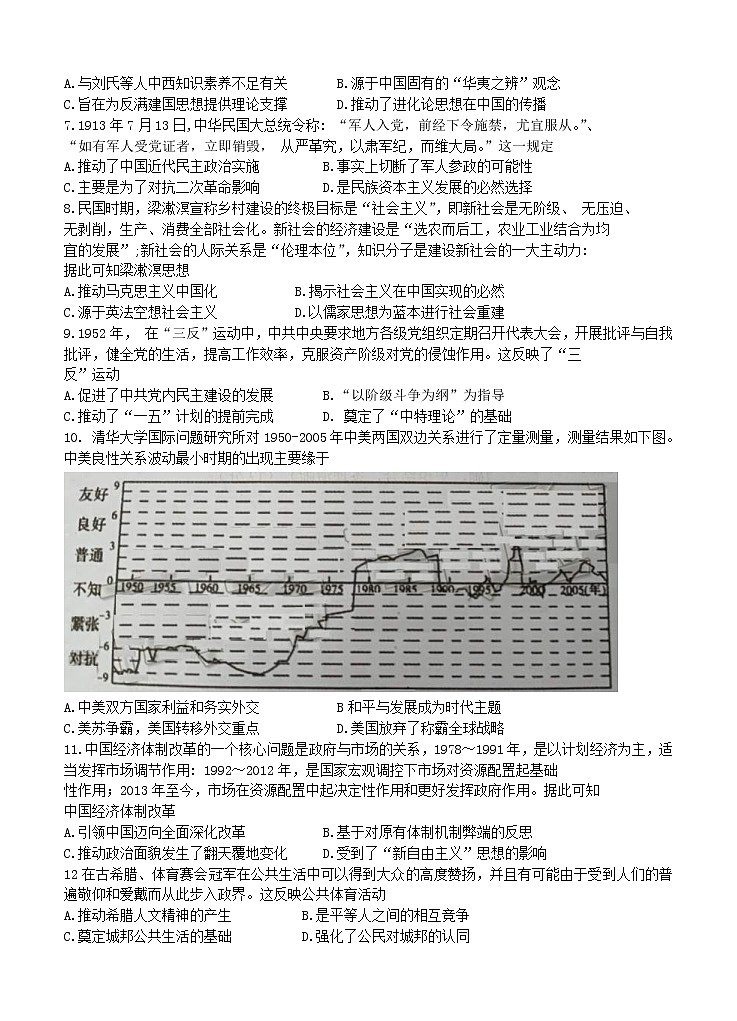 A.与刘氏等人中西知识素养不足有关 B.源于中国固有的“华夷之辨”观念
C.旨在为反满建国思想提供理论支撑 D.推动了进化论思想在中国的传播
7.1913年7月13日,中华民国大总统令称: “军人入党，前经下令施禁，尤宜服从。”、
“如有军人受党证者，立即销毁， 从严革究，以肃军纪，而维大局。”这一规定
A.推动了中国近代民主政治实施 B.事实上切断了军人参政的可能性
C.主要是为了对抗二次革命影响 D.是民族资本主义发展的必然选择
8.民国时期，梁漱溟宣称乡村建设的终极目标是“社会主义”，即新社会是无阶级、 无压迫、
无剥削，生产、消费全部社会化。新社会的经济建设是“选农而后工，农业工业结合为均
宜的发展”;新社会的人际关系是“伦理本位”，知识分子是建设新社会的一大主动力:
据此可知梁漱溟思想
A.推动马克思主义中国化 B.揭示社会主义在中国实现的必然
C.源于英法空想社会主义 D.以儒家思想为蓝本进行社会重建
9.1952年， 在“三反”运动中，中共中央要求地方各级党组织定期召开代表大会，开展批评与自我
批评，健全党的生活，提高工作效率，克服资产阶级对党的侵蚀作用。这反映了“三
反”运动
A.促进了中共党内民主建设的发展 B.“以阶级斗争为纲”为指导
C.推动了“一五”计划的提前完成 D. 奠定了“中特理论”的基础
10. 清华大学国际问题研究所对1950-2005年中美两国双边关系进行了定量测量，测量结果如下图。
中美良性关系波动最小时期的出现主要缘于
友好 9
良好 6
普通 3
不知 0 1950 1955 1960 1965 1970 1975 1980 1985 1990 1995 2000 2005(年)
紧张 -3
对抗 -6
-9
A.中美双方国家利益和务实外交 B和平与发展成为时代主题
C.美苏争霸，美国转移外交重点 D.美国放弃了称霸全球战略
11.中国经济体制改革的一个核心问题是政府与市场的关系，1978～1991年，是以计划经济为主，适
当发挥市场调节作用: 1992～2012年，是国家宏观调控下市场对资源配置起基础
性作用；2013年至今，市场在资源配置中起决定性作用和更好发挥政府作用。据此可知
中国经济体制改革
A.引领中国迈向全面深化改革 B.基于对原有体制机制弊端的反思
C.推动政治面貌发生了翻天覆地变化 D.受到了“新自由主义”思想的影响
12在古希腊、体育赛会冠军在公共生活中可以得到大众的高度赞扬，并且有可能由于受到人们的普
遍敬仰和爱戴而从此步入政界。这反映公共体育活动
A.推动希腊人文精神的产生 B.是平等人之间的相互竞争
C.奠定城邦公共生活的基础 D.强化了公民对城邦的认同